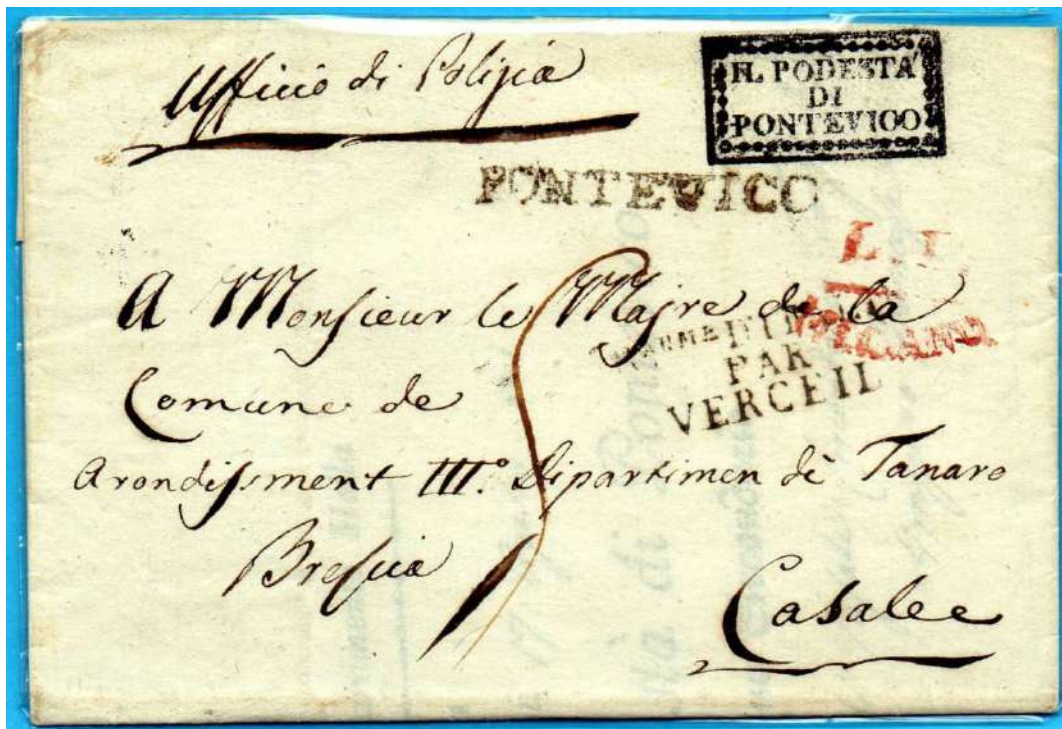 Ufficio di Polizia
IL PODESTA'
DI
PONTEVICO
PONTEVICO
L. I
A Monsieur le Majre de la
PAR
VERCEIL
Comune de
Arondissment III.º Dipartimen dè Tanaro
Brescia
Casalee